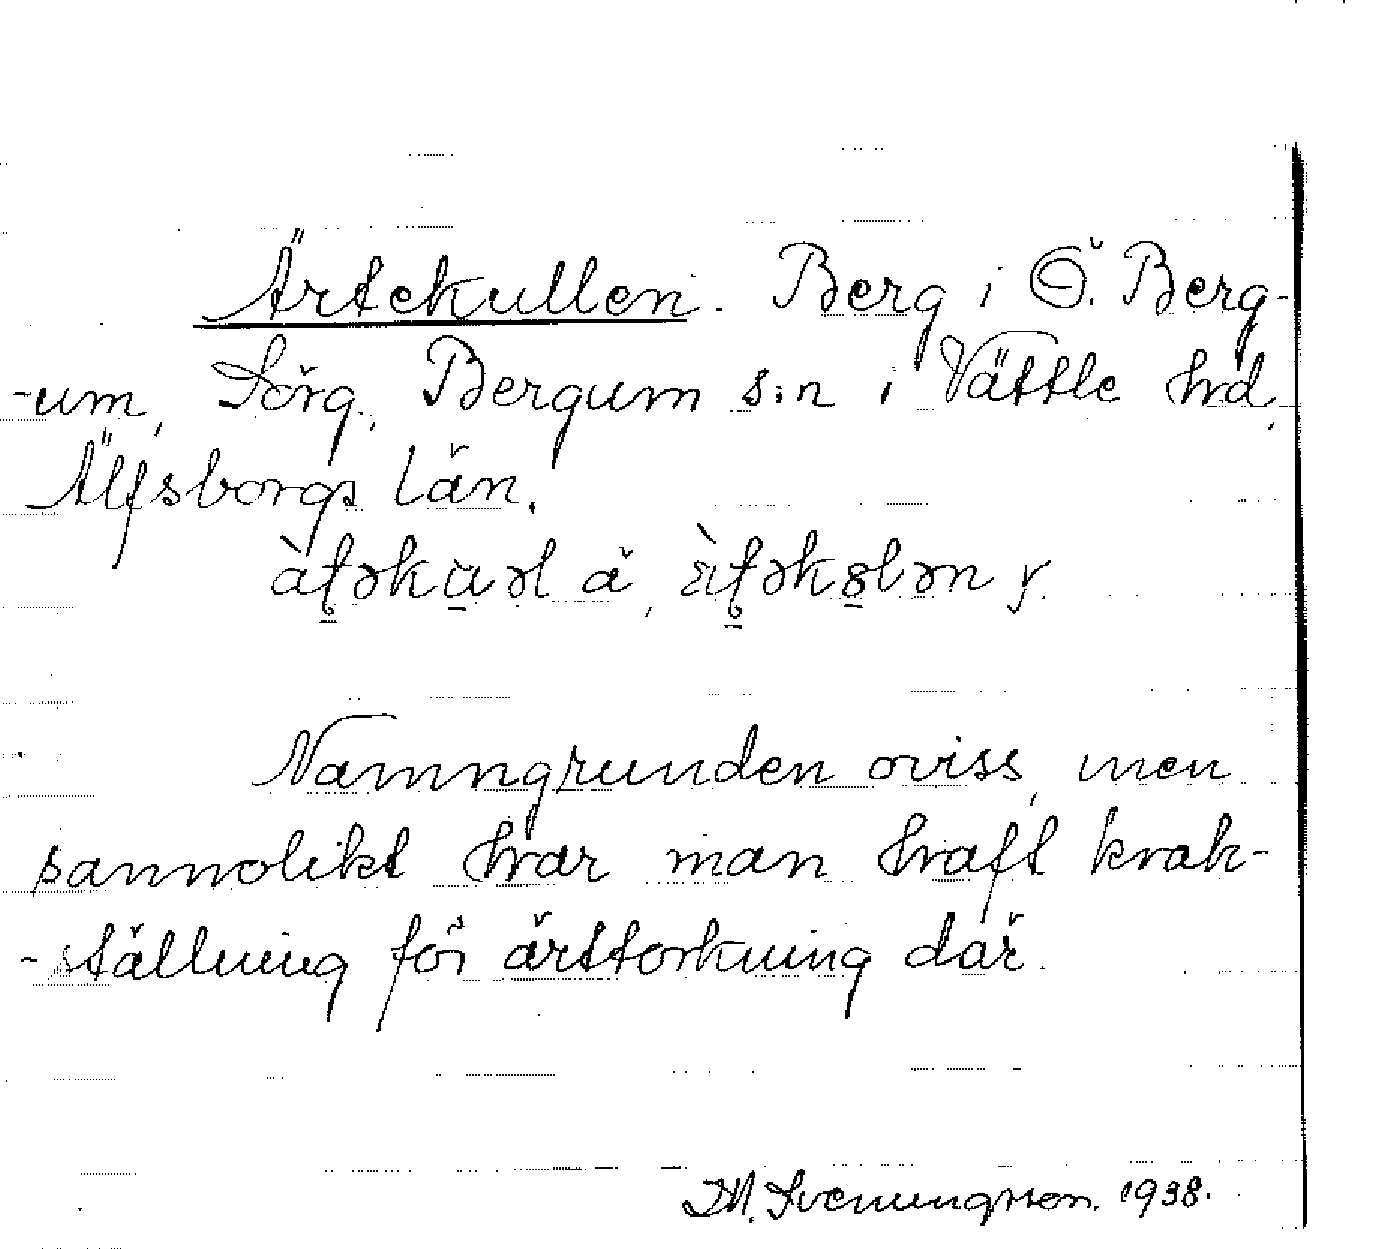 Ärtekullen. Berg i Ö. Berg-
-um, Sörg., Bergum s:n i Vättle hrd,
Älfsborgs län.
Namngrunden oviss, men
sannolikt har man haft krak-
-ställning för ärttorkning där.
M. Svenungsson. 1938.